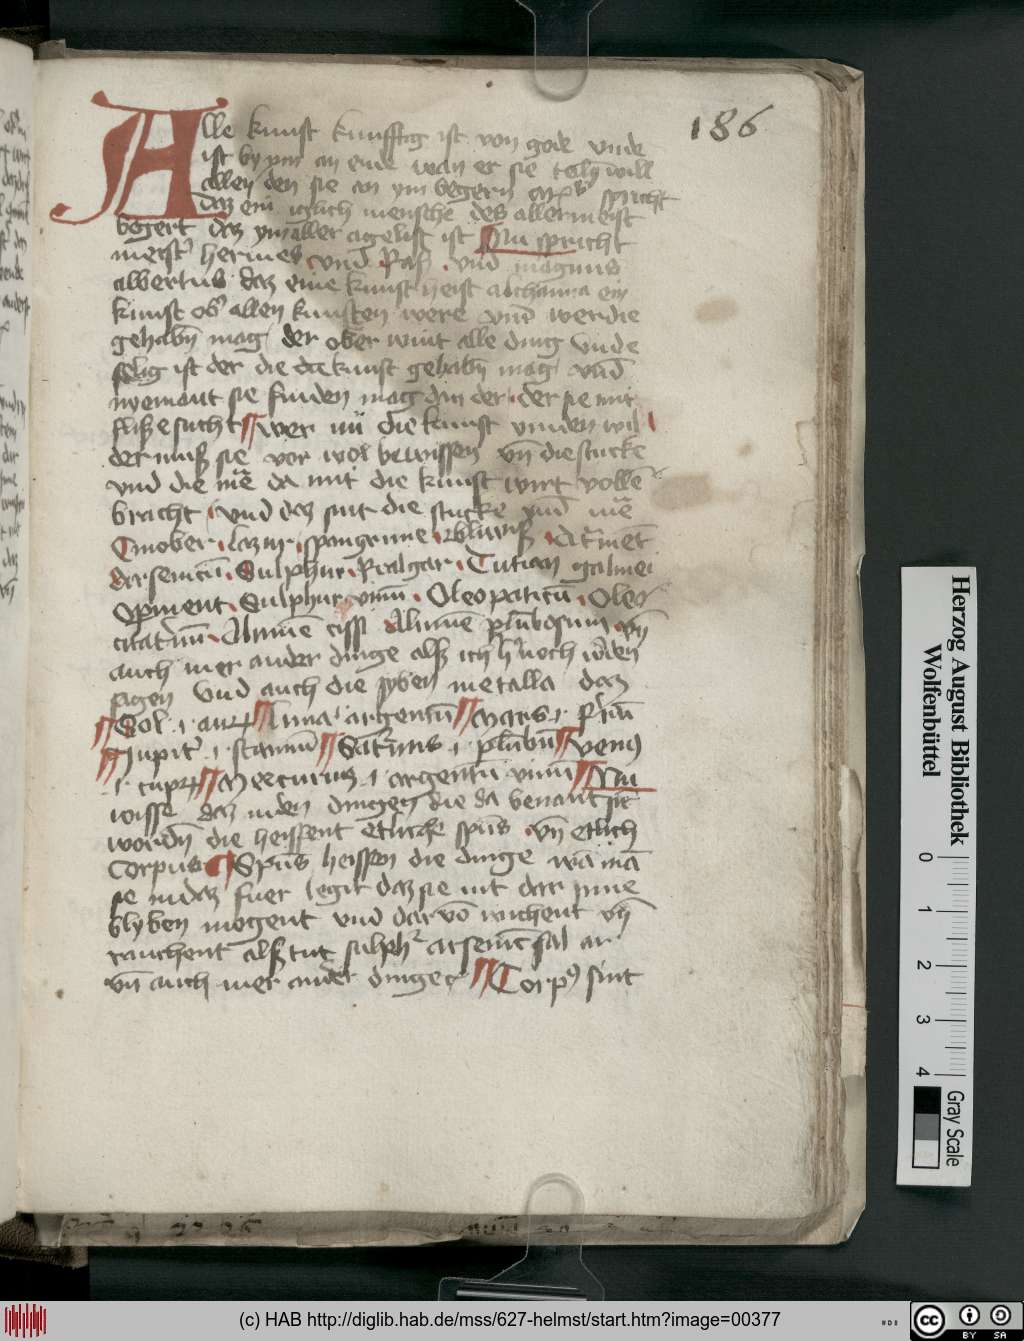 186
Alle kunst kunfftig ist von gode vnde
ist by ym an ende wan er sie teylt will
allen den sie an ym begern spricht
daz ein iglich mensche des allermeist
begert daz ym aller ist Nu spricht
meist' hermes vnd Rasis vnd magnus
albertus daz eine kunst heist alchamia ein
kunst ob' allen kunsten were vnd wer die
gehabn mag der ober wint alle ding vnde
selig ist der die die kunst gehabn mag vnd
nyemant sie finden mag dan der der sie mit
flisze sucht wer nu die kunst vinden wil
der musz sie vor wol bewissen vn die stucke
vnd die da mit die kunst wirt volle
bracht vnd daz sint die stucke vnd
Cinober lazur spongrune blywisz Atrmet
Arsenicu Sulphur Realgar Tutian galmei
Opment Sulphur vivu Oleo paticu Oleo
Alume cissi Alume plubosum vn
auch mer ander dinge alsz ich h' noch w'den
sagen vnd auch die syben metalla daz
Sol .i. aur luna argentu Mars .i. ferru
Jupit' .i. stannu Sat'nus .i. plubu venus
.i. cupr Mercurius .i. argentu viuu Nu
wisse daz in den dingen die da benant sin
wordn die heissent etliche spus vn etlich
Corpus Spus heissen die dinge wa man
se in daz fuer legit daz sie nit dar inne
blyben mogent vnd dar vo wichent vn
rauchent alsz tut sulph' arsenic sal ar
vn auch mer ander dinge Corpus sint
Herzog August Bibliothek
Wolfenbüttel
0 1 2 3 4
Gray Scale
(c) HAB http://diglib.hab.de/mss/627-helmst/start.htm?image=00377
cc BY SA